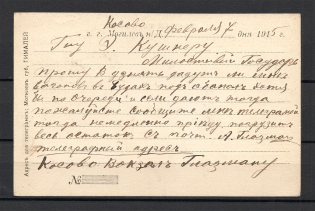 Косово
г. г. Могилев н/Д. февраля 7 дня 1915 г.
Гну З. Кушнеру
Милостивый Государь
прошу В узнать дадут ли мне
вагонов въ Чудак подъ хотя
и по очереди и если дают тогда
пожалуйста сообщите мне телеграмой
тогда немедленно прiеду погрузить
весь остаток Съ почт. А. Глазман
телеграфный адресъ
Косово Вокзалъ Глазману
№
Адресъ для телеграммъ: Могилевъ губ. ГИМАЛЕЙ